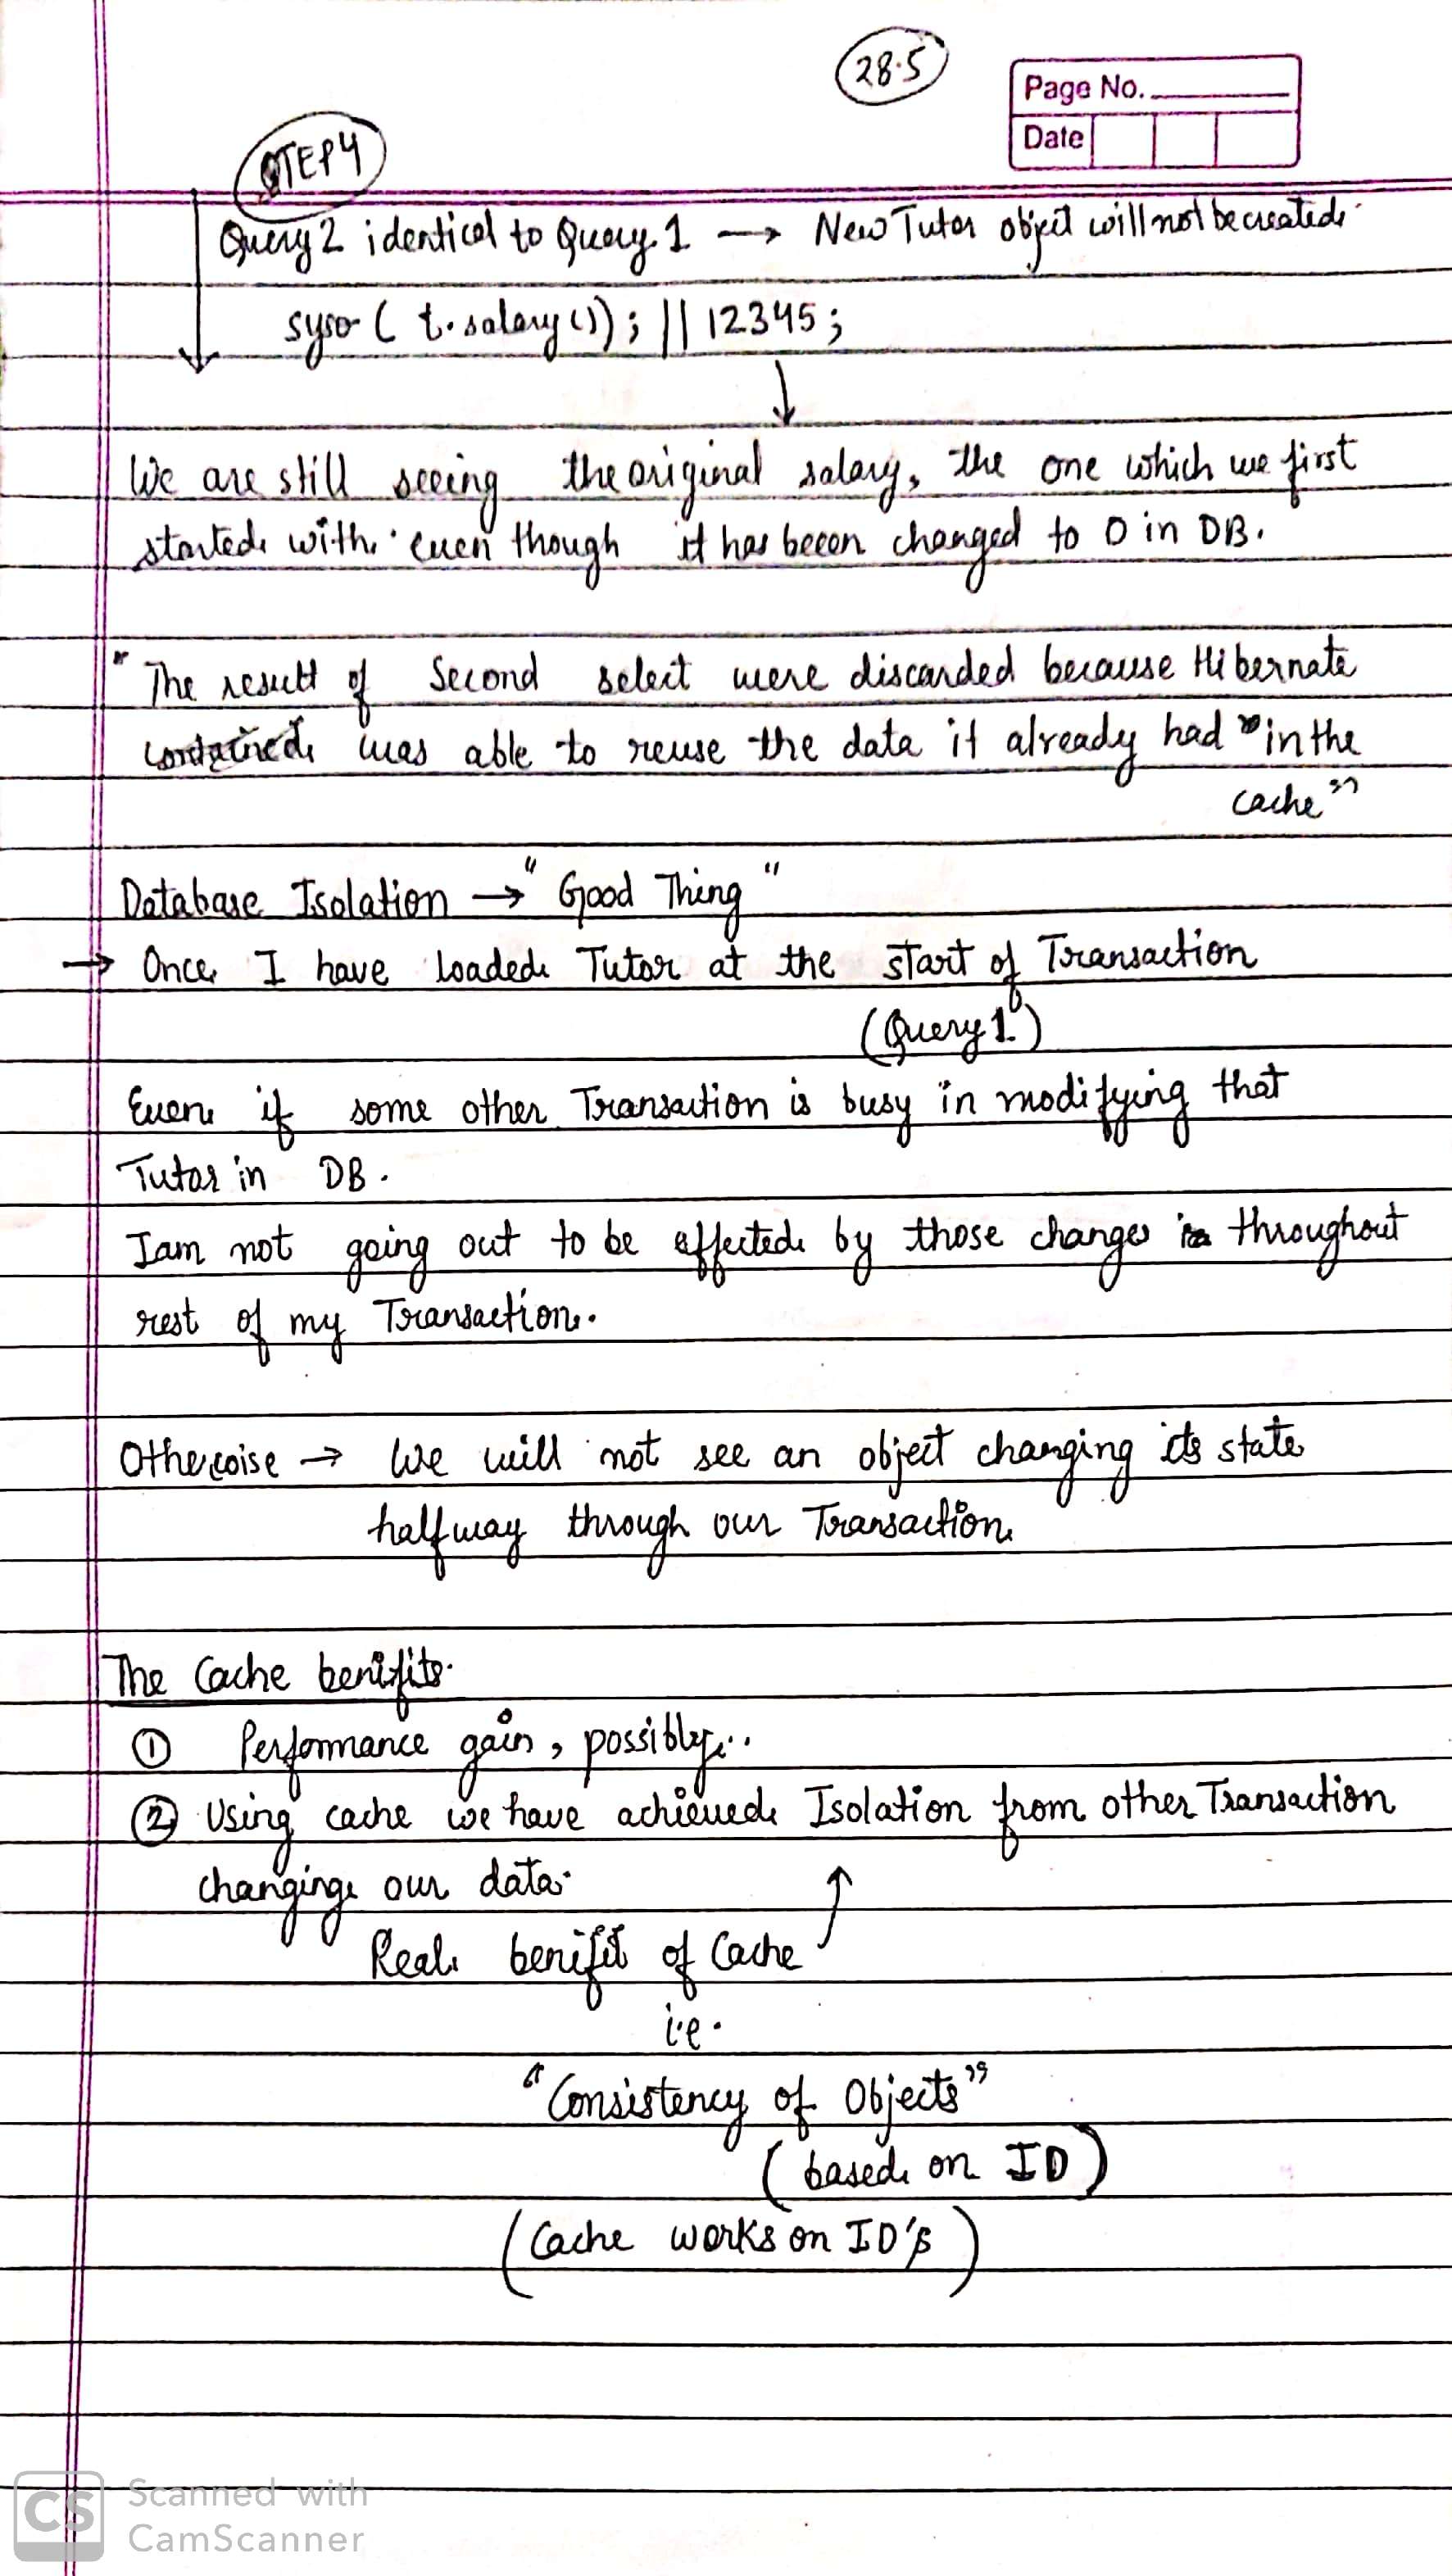 28.5
Page No.
Date
STEP4
Query 2 identical to Query 1 → New Tutor object will not be created.
syso ( t.salary()); || 12345;
↓
We are still seeing the original salary, the one which we first
started with. even though it has beeen changed to 0 in DB.
" The result of Second select were discarded because Hibernate
contained was able to reuse the data it already had in the
cache "
Database Isolation → " Good Thing "
→ Once I have loaded Tutor at the start of Transaction
(Query 1)
Even if some other Transaction is busy in modifying that
Tutor in DB.
I am not going out to be affected by those changes in throughout
rest of my Transaction.
Otherwise → We will not see an object changing its state
halfway through our Transaction
The Cache benifits.
① Performance gain, possibly...
② Using cache we have achieved Isolation from other Transaction
changing our data. ↑
Real benifit of Cache
i.e.
" Consistency of Objects "
( based on ID )
( Cache works on ID's )
CS Scanned with
CamScanner